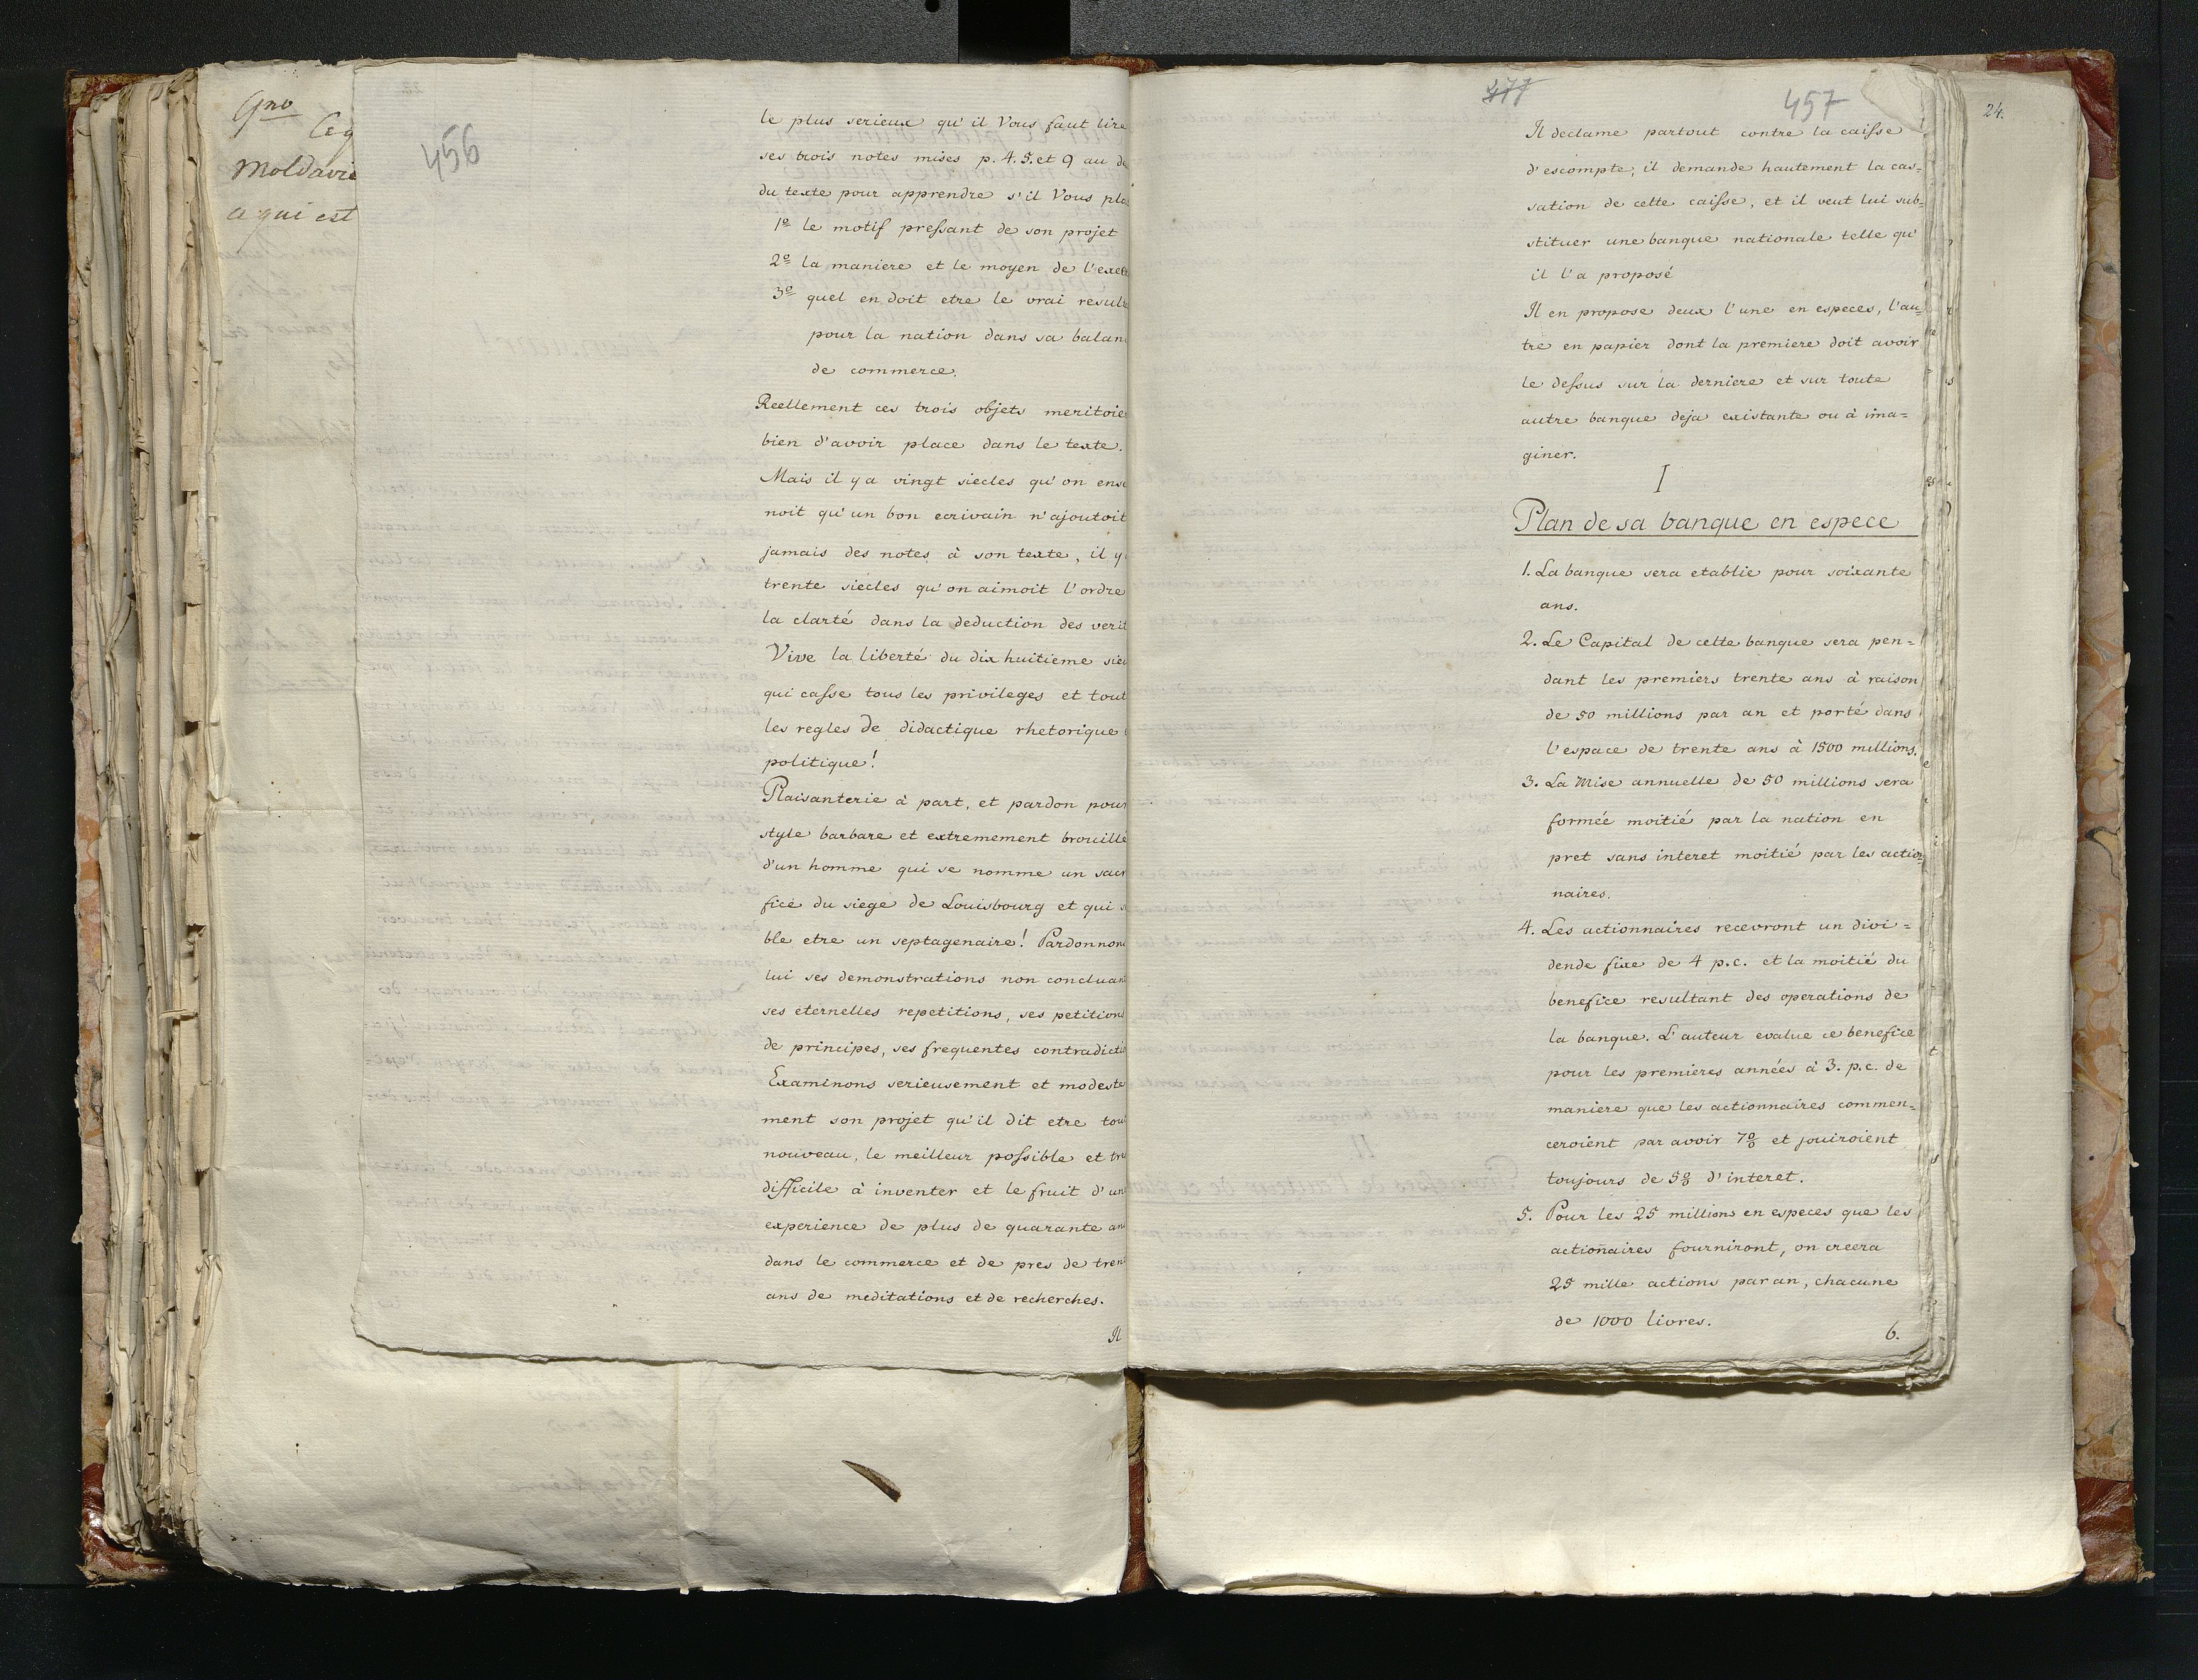 Ceq
Moldavie
a qui est
456
le plus serieux qu'il Vous faut lire
ses trois notes mises p. 4. 5. et 9 au de
du texte pour apprendre s'il Vous pla
1º le motif pressant de son projet
2º la maniere et le moyen de l'exec
3º quel en doit etre le vrai result
pour la nation dans sa balan
de commerce.
Reellement ces trois objets meritoie
bien d'avoir place dans le texte.
Mais il y a vingt siecles qu'on ense
noit qu'un bon ecrivain n'ajoutoit
jamais des notes à son texte, il y
trente siecles qu'on aimoit l'ordre
la clarté dans la deduction des verit
Vive la liberté du dix huitieme siec
qui casse tous les privileges et tout
les regles de didactique rhetorique
politique!
Plaisanterie à part, et pardon pour
style barbare et extremement brouille
d'un homme qui se nomme un sacr
fice du siege de Louisbourg et qui s
ble etre un septagenaire! Pardonnon
lui ses demonstrations non concluan
ses eternelles repetitions, ses petition
de principes, ses frequentes contradicti
Examinons serieusement et modeste
ment son projet qu'il dit etre tou
nouveau, le meilleur possible et tre
difficile à inventer et le fruit d'un
experience de plus de quarante an
dans le commerce et de pres de tren
ans de meditations et de recherches.
Il
477
457
24.
Il declame partout contre la caisse
d'escompte, il demande hautement la cas=
sation de cette caisse, et il veut lui sub=
stituer une banque nationale telle qu'
il l'a proposé
Il en propose deux l'une en especes, l'au=
tre en papier dont la premiere doit avoir
le dessus sur la derniere et sur toute
autre banque deja existante ou à ima=
giner.
I
Plan de sa banque en espece
1. La banque sera etablie pour soixante
ans.
2. Le Capital de cette banque sera pen=
dant les premiers trente ans à raison
de 50 millions par an et porté dans
l'espace de trente ans à 1500 millions.
3. La Mise annuelle de 50 millions sera
formée moitié par la nation en
pret sans interet moitié par les actio=
naires.
4. Les actionnaires recevront un divi=
dende fixe de 4 p.c. et la moitié du
benefice resultant des operations de
la banque. L'auteur evalue ce benefice
pour les premieres années à 3. p.c. de
maniere que les actionnaires commen=
ceroient par avoir 7% et jouiroient
toujours de 5% d'interet.
5. Pour les 25 millions en especes que les
actioñaires fourniront, on creera
25 mille actions par an, chacune
de 1000 livres.
6.